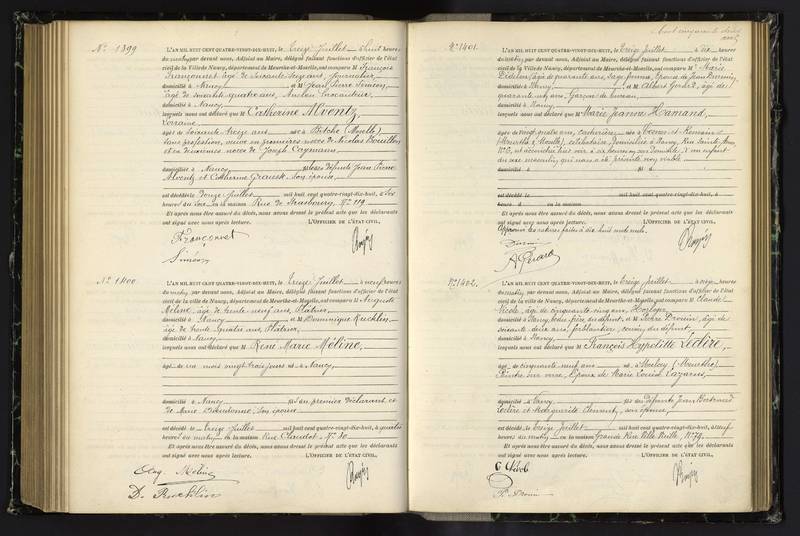 N° 1399
L'AN MIL HUIT CENT QUATRE-VINGT-DIX-HUIT, le treize Juillet à huit heures
du matin, par devant nous, Adjoint au Maire, délégué faisant fonctions d'officier de l'état
civil de la Ville de Nancy, département de Meurthe-et-Moselle, ont comparu M. François
Françonnet, âgé de soixante seize ans, Journalier,
domicilié à Nancy, et M. Jean Pierre
âgé de soixante quatre ans, Ancien
domicilié à Nancy
lesquels nous ont déclaré que M Catherine Alventz,
Lorraine,
âgée de soixante treize ans née à Bitche (Moselle),
sans profession, veuve en premières noces de Nicolas Bouillon
et en deuxièmes noces de Joseph
domiciliée à Nancy, fille des défunts Jean Pierre
Alventz et Catherine son épouse,
est décédée le douze Juillet mil huit cent quatre-vingt-dix-huit, à six
heures du soir en la maison Rue de Strasbourg, N° 119
Et après nous être assuré du décès, nous avons dressé le présent acte que les déclarants
ont signé avec nous après lecture. L'OFFICIER DE L'ÉTAT CIVIL,
Françonnet
N° 1400
L'AN MIL HUIT CENT QUATRE-VINGT-DIX-HUIT, le treize Juillet à neuf heures
du matin, par devant nous, Adjoint au Maire, délégué faisant fonctions d'officier de l'état
civil de la ville de Nancy, département de Meurthe-et-Moselle, ont comparu M. Auguste
Méline, âgé de trente neuf ans, Plâtrier,
domicilié à Nancy et M. Dominique Rucklin,
âgé de trente quatre ans, Plâtrier,
domicilié à Nancy,
lesquels nous ont déclaré que M René Marie Méline,
âgé de un mois vingt trois jours né à Nancy,
domicilié à Nancy fils du premier déclarant et
de Anne son épouse
est décédé le treize Juillet mil huit cent quatre-vingt-dix-huit, à quatre
heures du matin en la maison Rue Claudot, N° 30
Et après nous être assuré du décès, nous avons dressé le présent acte que les déclarants
ont signé avec nous après lecture. L'OFFICIER DE L'ÉTAT CIVIL,
Aug. Méline
D. Rucklin
N° 1401.
L'AN MIL HUIT CENT QUATRE-VINGT-DIX-HUIT, le treize Juillet à dix heures
du matin, par devant nous, Adjoint au Maire, délégué faisant fonctions d'officier de l'état
civil de la Ville de Nancy, département de Meurthe-et-Moselle, ont comparu M. Marie
Didelon, âgée de quarante ans, Sage femme, Epouse de Jean
domiciliée à Nancy, et M. Albert Gérard, âgé de
quarante huit ans, Garçon de bureau
domicilié à Nancy
lesquels nous ont déclaré que Marie Jeanne Hamand,
âgée de vingt quatre ans, née à
(Meurthe & Moselle), célibataire, domiciliée à Nancy, Rue Sainte Anne,
est accouchée hier soir à dix heures, en son domicile, d'un enfant
du sexe masculin qui nous a été présenté sans vie
domicilié à fil d
est décédé le mil huit cent quatre-vingt-dix-huit, à
heures d en la maison
Et après nous être assuré du décès, nous avons dressé le présent acte que les déclarants
ont signé avec nous après lecture. L'OFFICIER DE L'ÉTAT CIVIL,
A Gérard
N° 1402.
L'AN MIL HUIT CENT QUATRE-VINGT-DIX-HUIT, le treize Juillet à onze heures
du matin, par devant nous, Adjoint au Maire, délégué faisant fonctions d'officier de l'état
civil de la Ville de Nancy, département de Meurthe-et-Moselle, ont comparu M. Claude
âgé de cinquante cinq ans, Horloger,
domicilié à Nancy, beau-frère du défunt, et M. Pierre Drouin, âgé de
soixante deux ans, ferblantier, cousin du défunt,
domicilié à Nancy
lesquels nous ont déclaré que M François Hyppolitte Leclère,
âgé de cinquante neuf ans né à (Meurthe)
Peintre sur verre, Epoux de Marie Louise
domicilié à Nancy fils des défunts Jean
Leclère et Marguerite son épouse,
est décédé le treize Juillet mil huit cent quatre-vingt-dix-huit, à neuf
heures du matin en la maison Grande Rue Ville Vieille, N° 79.
Et après nous être assuré du décès, nous avons dressé le présent acte que les déclarants
ont signé avec nous après lecture. L'OFFICIER DE L'ÉTAT CIVIL,
P. Drouin